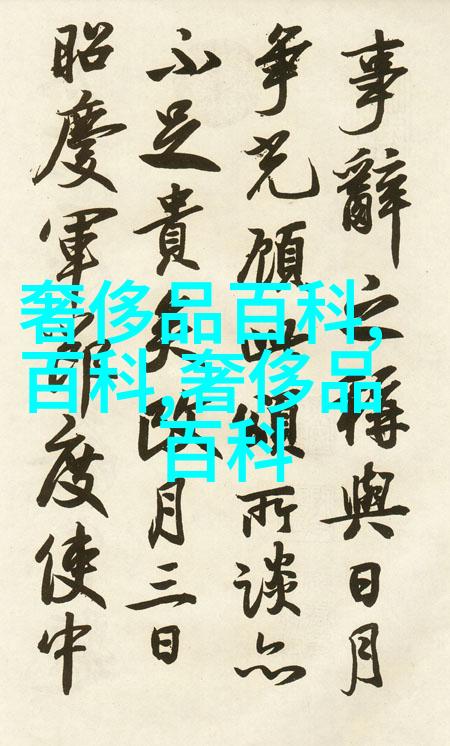 奢侈品百科,
百科,奢侈品
百科
事辭之稱與日月
争光顧所談亦
不足貴矣改月三日
昭慶軍節度使中